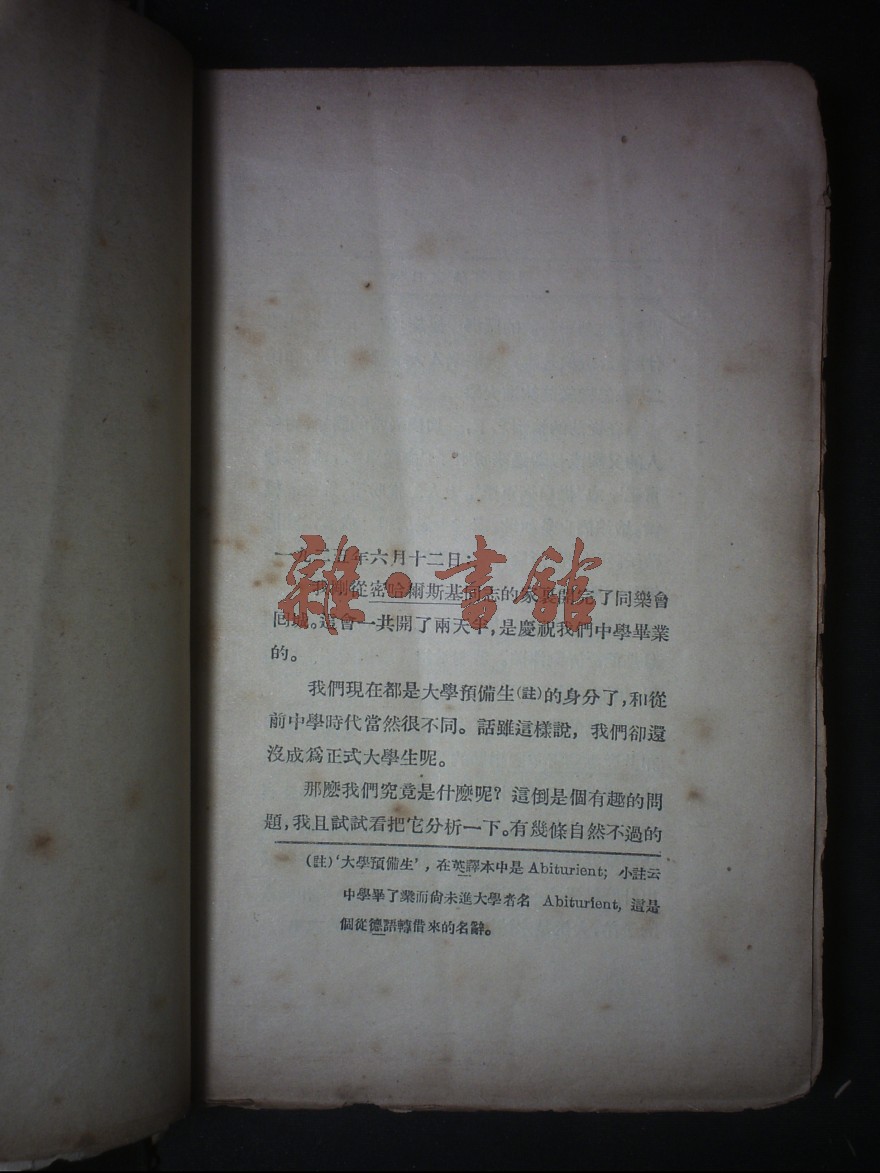 一九二五年六月十二日：
我剛從密哈爾斯基同志的家裏開完了同樂會
回城。這會一共開了兩天半，是慶祝我們中學畢業
的。
我們現在都是大學預備生(註)的身分了，和從
前中學時代當然很不同。話雖這樣說，我們卻還
沒成爲正式大學生呢。
那麽我們究竟是什麽呢？這倒是個有趣的問
題，我且試試看把它分析一下。有幾條自然不過的
(註)‘大學預備生’，在英譯本中是Abiturient; 小註云
中學畢了業而尙未進大學者名 Abiturient, 這是
個從德語轉借來的名辭。
雜·書館